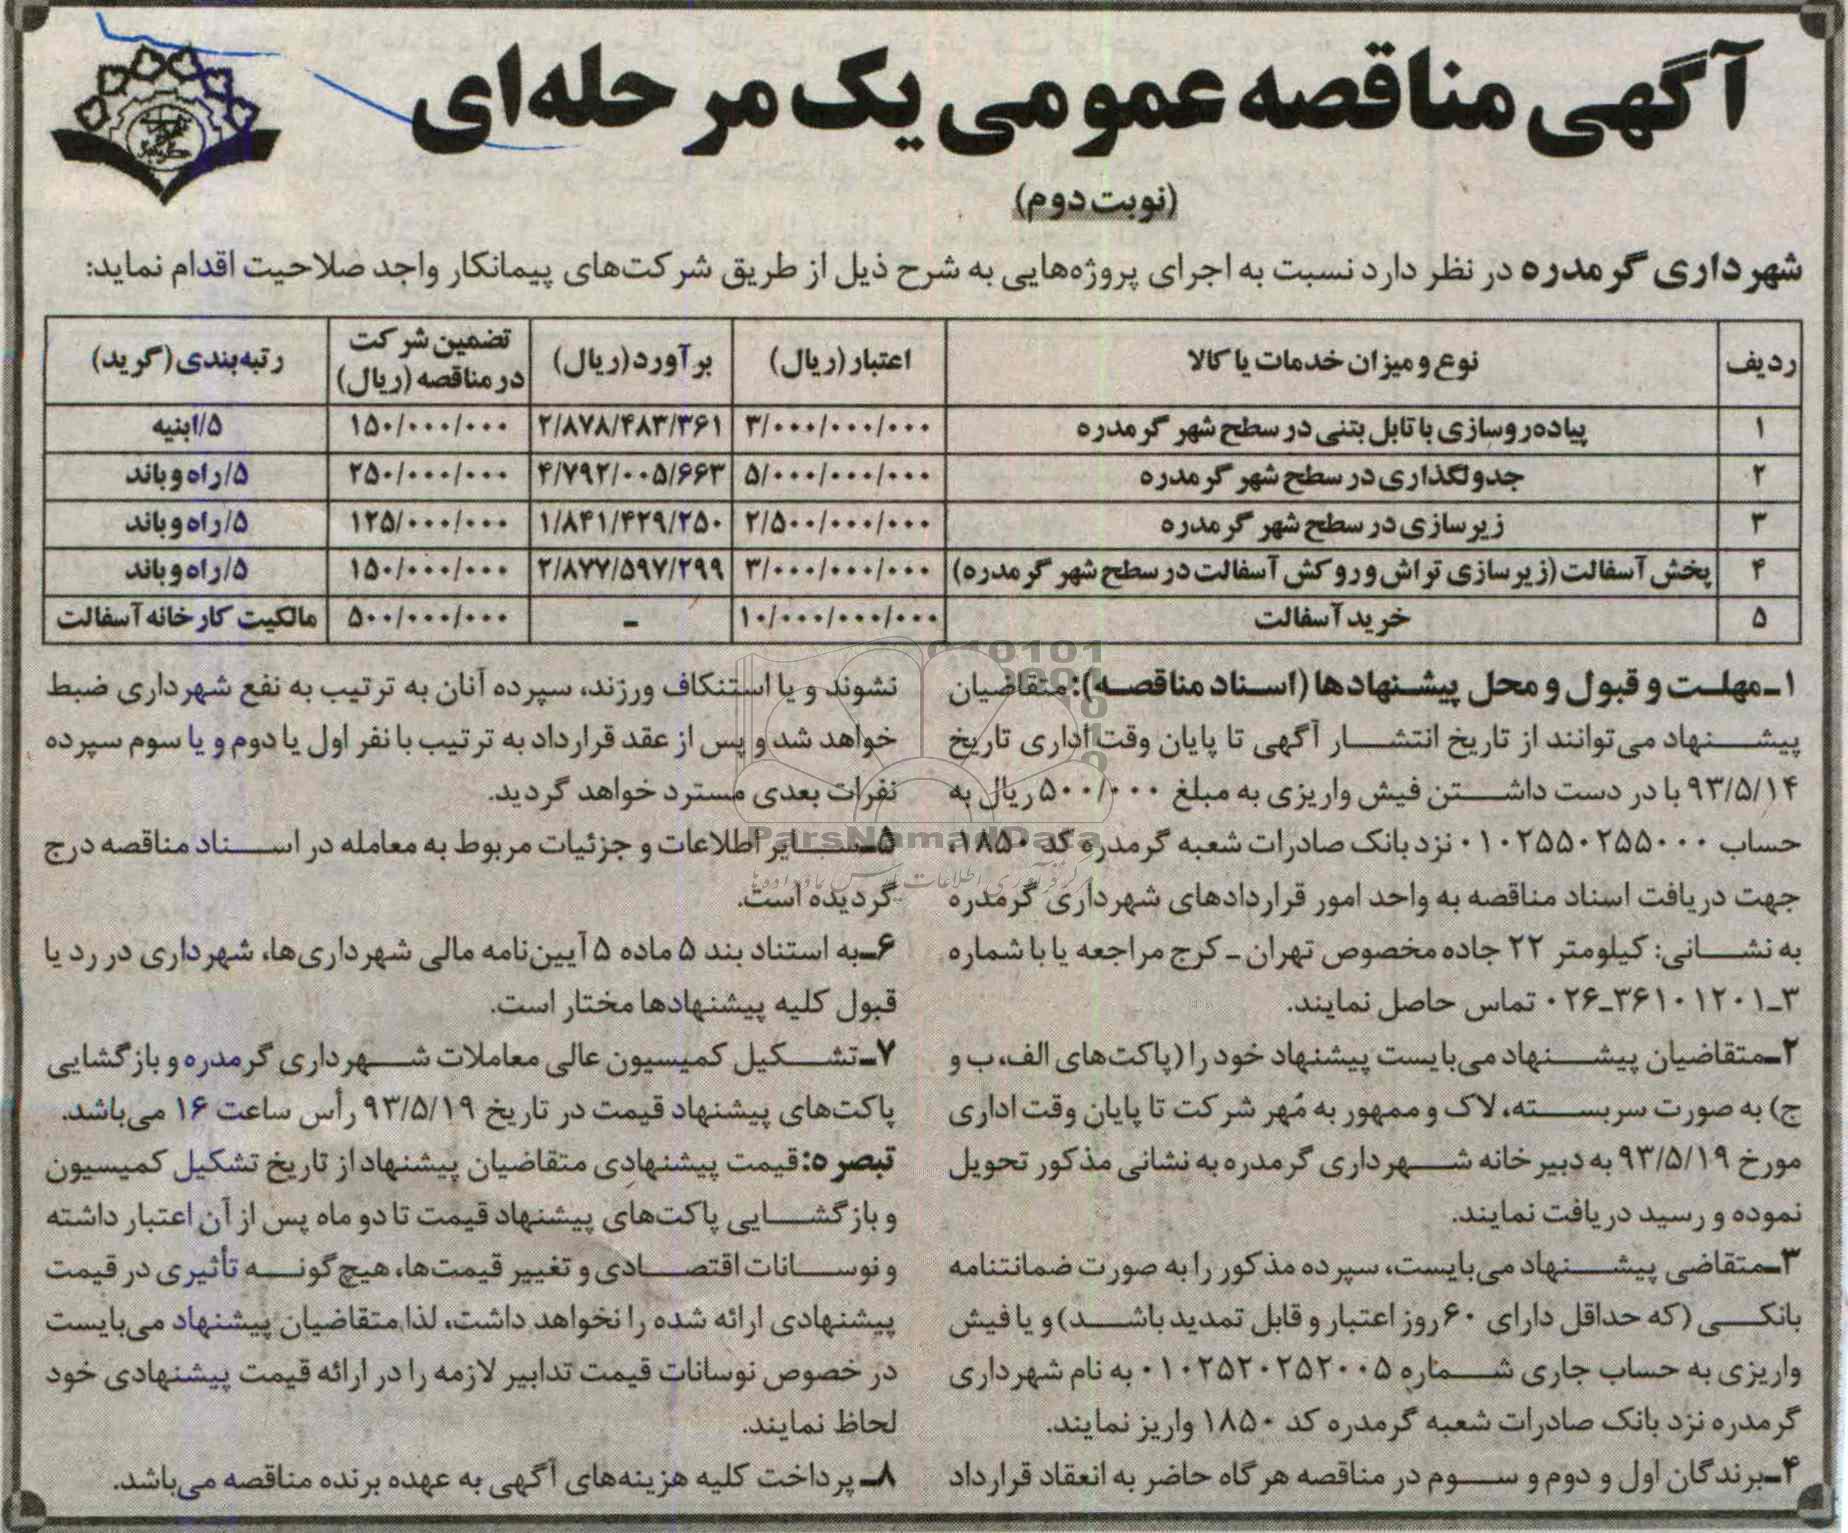 آگهی مناقصه عمومی یک مرحله‌ای
(نوبت دوم)
شهرداری گرمدره در نظر دارد نسبت به اجرای پروژه‌هایی به شرح ذیل از طریق شرکت‌های پیمانکار واجد صلاحیت اقدام نماید:
ردیف | نوع و میزان خدمات یا کالا | اعتبار (ریال) | برآورد (ریال) | تضمین شرکت در مناقصه (ریال) | رتبه‌بندی (گرید)
۱ | پیاده‌روسازی با تابل بتنی در سطح شهر گرمدره | ۳/۰۰۰/۰۰۰/۰۰۰ | ۲/۸۷۸/۴۸۳/۳۶۱ | ۱۵۰/۰۰۰/۰۰۰ | ۵/ابنیه
۲ | جدولگذاری در سطح شهر گرمدره | ۵/۰۰۰/۰۰۰/۰۰۰ | ۴/۷۹۲/۰۰۵/۶۶۳ | ۲۵۰/۰۰۰/۰۰۰ | ۵/راه و باند
۳ | زیرسازی در سطح شهر گرمدره | ۲/۵۰۰/۰۰۰/۰۰۰ | ۱/۸۴۱/۴۲۹/۲۵۰ | ۱۲۵/۰۰۰/۰۰۰ | ۵/راه و باند
۴ | پخش آسفالت (زیرسازی تراش و روکش آسفالت در سطح شهر گرمدره) | ۳/۰۰۰/۰۰۰/۰۰۰ | ۲/۸۷۷/۵۹۷/۲۹۹ | ۱۵۰/۰۰۰/۰۰۰ | ۵/راه و باند
۵ | خرید آسفالت | ۱۰/۰۰۰/۰۰۰/۰۰۰ | - | ۵۰۰/۰۰۰/۰۰۰ | مالکیت کارخانه آسفالت
۱ـ مهلت و قبول و محل پیشنهادها (اسناد مناقصه): متقاضیان
پیشنهاد می‌توانند از تاریخ انتشار آگهی تا پایان وقت اداری تاریخ
۹۳/۵/۱۴ با در دست داشتن فیش واریزی به مبلغ ۵۰۰/۰۰۰ ریال به
حساب ۰۱۰۲۵۵۰۲۵۵۰۰۰ نزد بانک صادرات شعبه گرمدره کد ۱۸۵۰،
جهت دریافت اسناد مناقصه به واحد امور قراردادهای شهرداری گرمدره
به نشانی: کیلومتر ۲۲ جاده مخصوص تهران ـ کرج مراجعه یا با شماره
۳ـ۳۶۱۰۱۲۰۱ـ۰۲۶ تماس حاصل نمایند.
۲ـ متقاضیان پیشنهاد می‌بایست پیشنهاد خود را (پاکت‌های الف، ب و
ج) به صورت سربسته، لاک و ممهور به مُهر شرکت تا پایان وقت اداری
مورخ ۹۳/۵/۱۹ به دبیرخانه شهرداری گرمدره به نشانی مذکور تحویل
نموده و رسید دریافت نمایند.
۳ـ متقاضی پیشنهاد می‌بایست، سپرده مذکور را به صورت ضمانتنامه
بانکی (که حداقل دارای ۶۰ روز اعتبار و قابل تمدید باشد) و یا فیش
واریزی به حساب جاری شماره ۰۱۰۲۵۲۰۲۵۲۰۰۵ به نام شهرداری
گرمدره نزد بانک صادرات شعبه گرمدره کد ۱۸۵۰ واریز نمایند.
۴ـ برندگان اول و دوم و سوم در مناقصه هرگاه حاضر به انعقاد قرارداد
نشوند و یا استنکاف ورزند، سپرده آنان به ترتیب به نفع شهرداری ضبط
خواهد شد و پس از عقد قرارداد به ترتیب با نفر اول یا دوم و یا سوم سپرده
نفرات بعدی مسترد خواهد گردید.
۵ـ سایر اطلاعات و جزئیات مربوط به معامله در اسناد مناقصه درج
گردیده است.
۶ـ به استناد بند ۵ ماده ۵ آیین‌نامه مالی شهرداری‌ها، شهرداری در رد یا
قبول کلیه پیشنهادها مختار است.
۷ـ تشکیل کمیسیون عالی معاملات شهرداری گرمدره و بازگشایی
پاکت‌های پیشنهاد قیمت در تاریخ ۹۳/۵/۱۹ رأس ساعت ۱۶ می‌باشد.
تبصره: قیمت پیشنهادی متقاضیان پیشنهاد از تاریخ تشکیل کمیسیون
و بازگشایی پاکت‌های پیشنهاد قیمت تا دو ماه پس از آن اعتبار داشته
و نوسانات اقتصادی و تغییر قیمت‌ها، هیچ گونه تأثیری در قیمت
پیشنهادی ارائه شده را نخواهد داشت، لذا متقاضیان پیشنهاد می‌بایست
در خصوص نوسانات قیمت تدابیر لازمه را در ارائه قیمت پیشنهادی خود
لحاظ نمایند.
۸ـ پرداخت کلیه هزینه‌های آگهی به عهده برنده مناقصه می‌باشد.
ParsNamadData